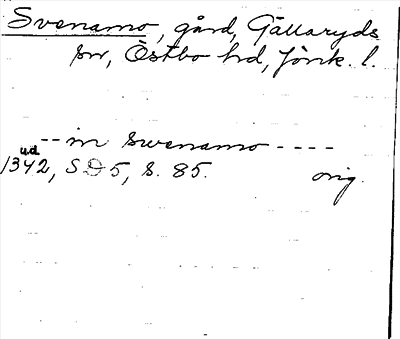 Svenamo, gård, Gällaryds
sn, Östbo hd, Jönk. l.
-- in swenamo ----
ud
1342, SD 5, s. 85. orig.